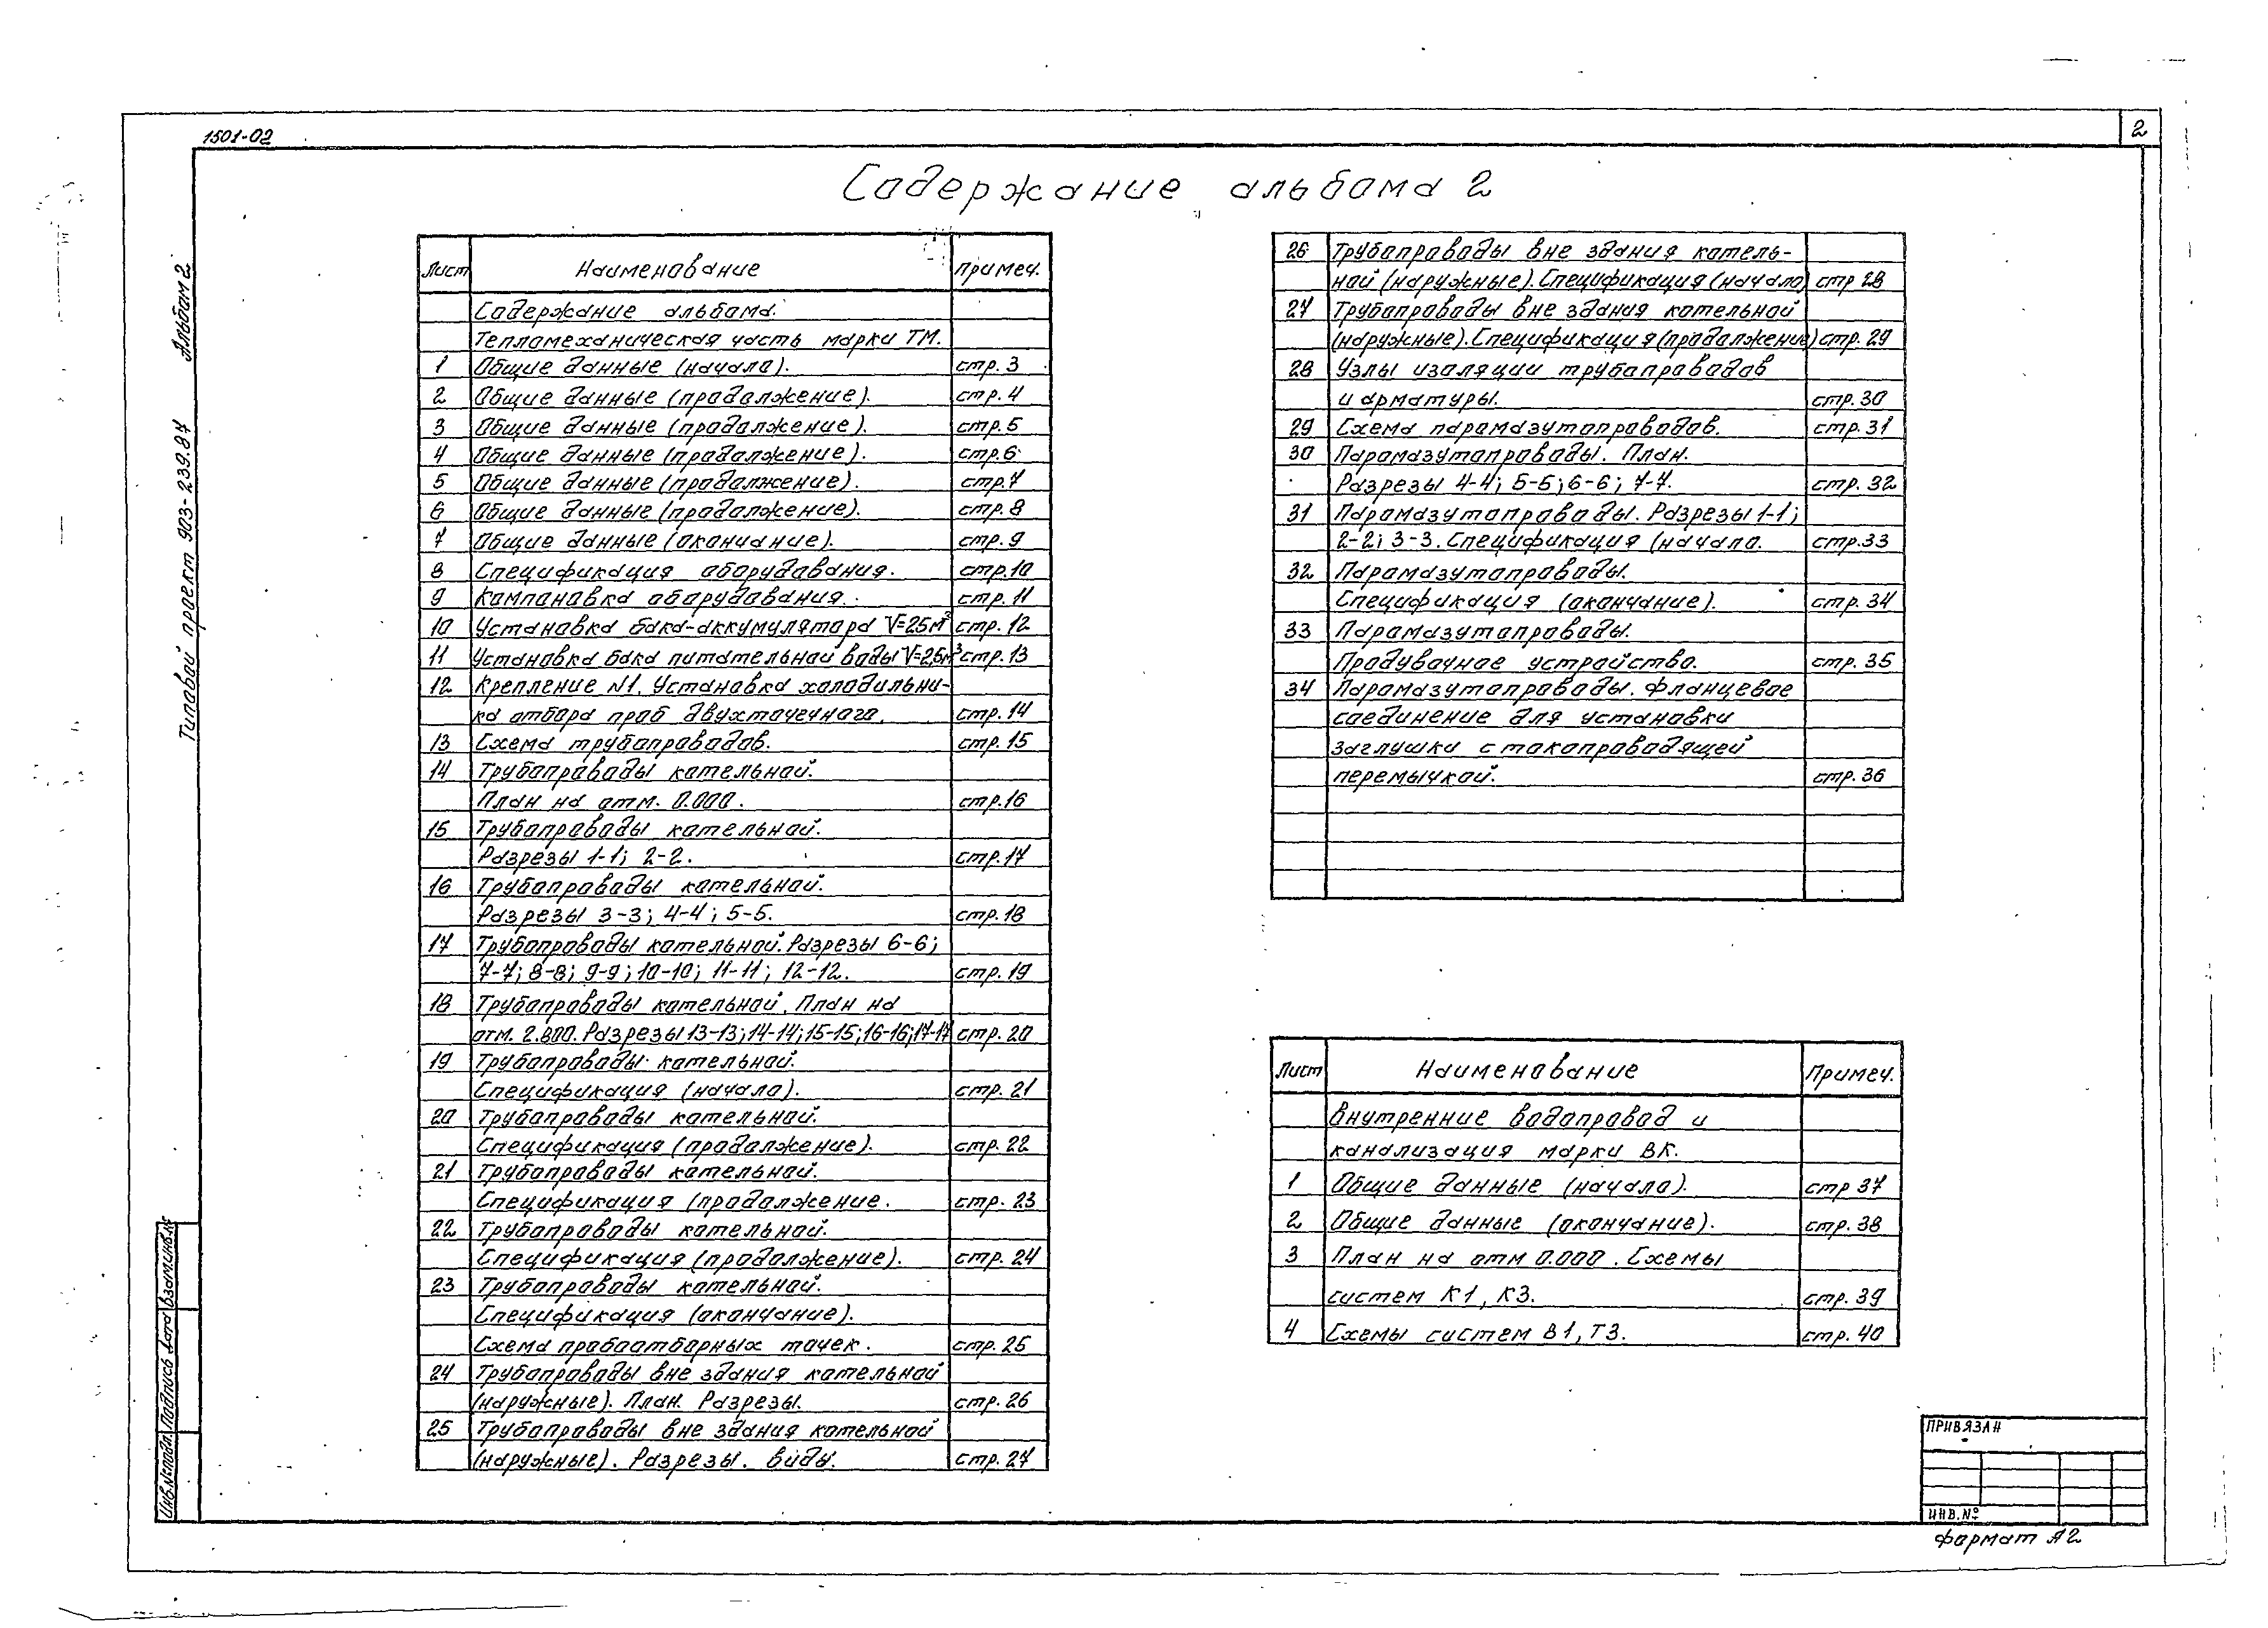 1501-02
2
Содержание альбома 2
Типовой проект 903-239.87 Альбом 2
Лист Наименование Примеч.
Содержание альбома.
Тепломеханическая часть марки ТМ.
1 Общие данные (начало). стр. 3
2 Общие данные (продолжение). стр. 4
3 Общие данные (продолжение). стр. 5
4 Общие данные (продолжение). стр. 6
5 Общие данные (продолжение). стр. 7
6 Общие данные (продолжение). стр. 8
7 Общие данные (окончание). стр. 9
8 Спецификация оборудования. стр. 10
9 Компановка оборудования. стр. 11
10 Установка бака-аккумулятора V=25м³ стр. 12
11 Установка бака питательной воды V=25м³ стр. 13
12 Крепление N1. Установка холодильни-
ка отбора проб двухточечного. стр. 14
13 Схема трубопроводов. стр. 15
14 Трубопроводы котельной.
План на отм. 0.000. стр. 16
15 Трубопроводы котельной.
Разрезы 1-1; 2-2. стр. 17
16 Трубопроводы котельной.
Разрезы 3-3; 4-4; 5-5. стр. 18
17 Трубопроводы котельной. Разрезы 6-6;
7-7; 8-8; 9-9; 10-10; 11-11; 12-12. стр. 19
18 Трубопроводы котельной. План на
отм. 2.800. Разрезы 13-13; 14-14; 15-15; 16-16; 17-17 стр. 20
19 Трубопроводы котельной.
Спецификация (начало). стр. 21
20 Трубопроводы котельной.
Спецификация (продолжение). стр. 22
21 Трубопроводы котельной.
Спецификация (продолжение. стр. 23
22 Трубопроводы котельной.
Спецификация (продолжение). стр. 24
23 Трубопроводы котельной.
Спецификация (окончание).
Схема пробоотборных точек. стр. 25
24 Трубопроводы вне здания котельной
(наружные). План. Разрезы. стр. 26
25 Трубопроводы вне здания котельной
(наружные). Разрезы. Виды. стр. 27
26 Трубопроводы вне здания котель-
ной (наружные). Спецификация (начало) стр 28
27 Трубопроводы вне здания котельной
(наружные). Спецификация (продолжение) стр. 29
28 Узлы изоляции трубопроводов
и арматуры. стр. 30
29 Схема паромазутопроводов. стр. 31
30 Паромазутопроводы. План.
Разрезы 4-4; 5-5; 6-6; 7-7. стр. 32
31 Паромазутопроводы. Разрезы 1-1;
2-2; 3-3. Спецификация (начало. стр. 33
32 Паромазутопроводы.
Спецификация (окончание). стр. 34
33 Паромазутопроводы.
Продувочное устройство. стр. 35
34 Паромазутопроводы. Фланцевое
соединение для установки
заглушки с токопроводящей
перемычкой. стр. 36
Лист Наименование Примеч.
Внутренние водопровод и
канализация марки ВК.
1 Общие данные (начало). стр 37
2 Общие данные (окончание). стр. 38
3 План на отм 0.000. Схемы
систем К1, К3. стр. 39
4 Схемы систем В1, Т3. стр. 40
Инв.№подл. Подпись Дата Взам.инв.№
ПРИВЯЗАН
ИНВ.№
Формат А2